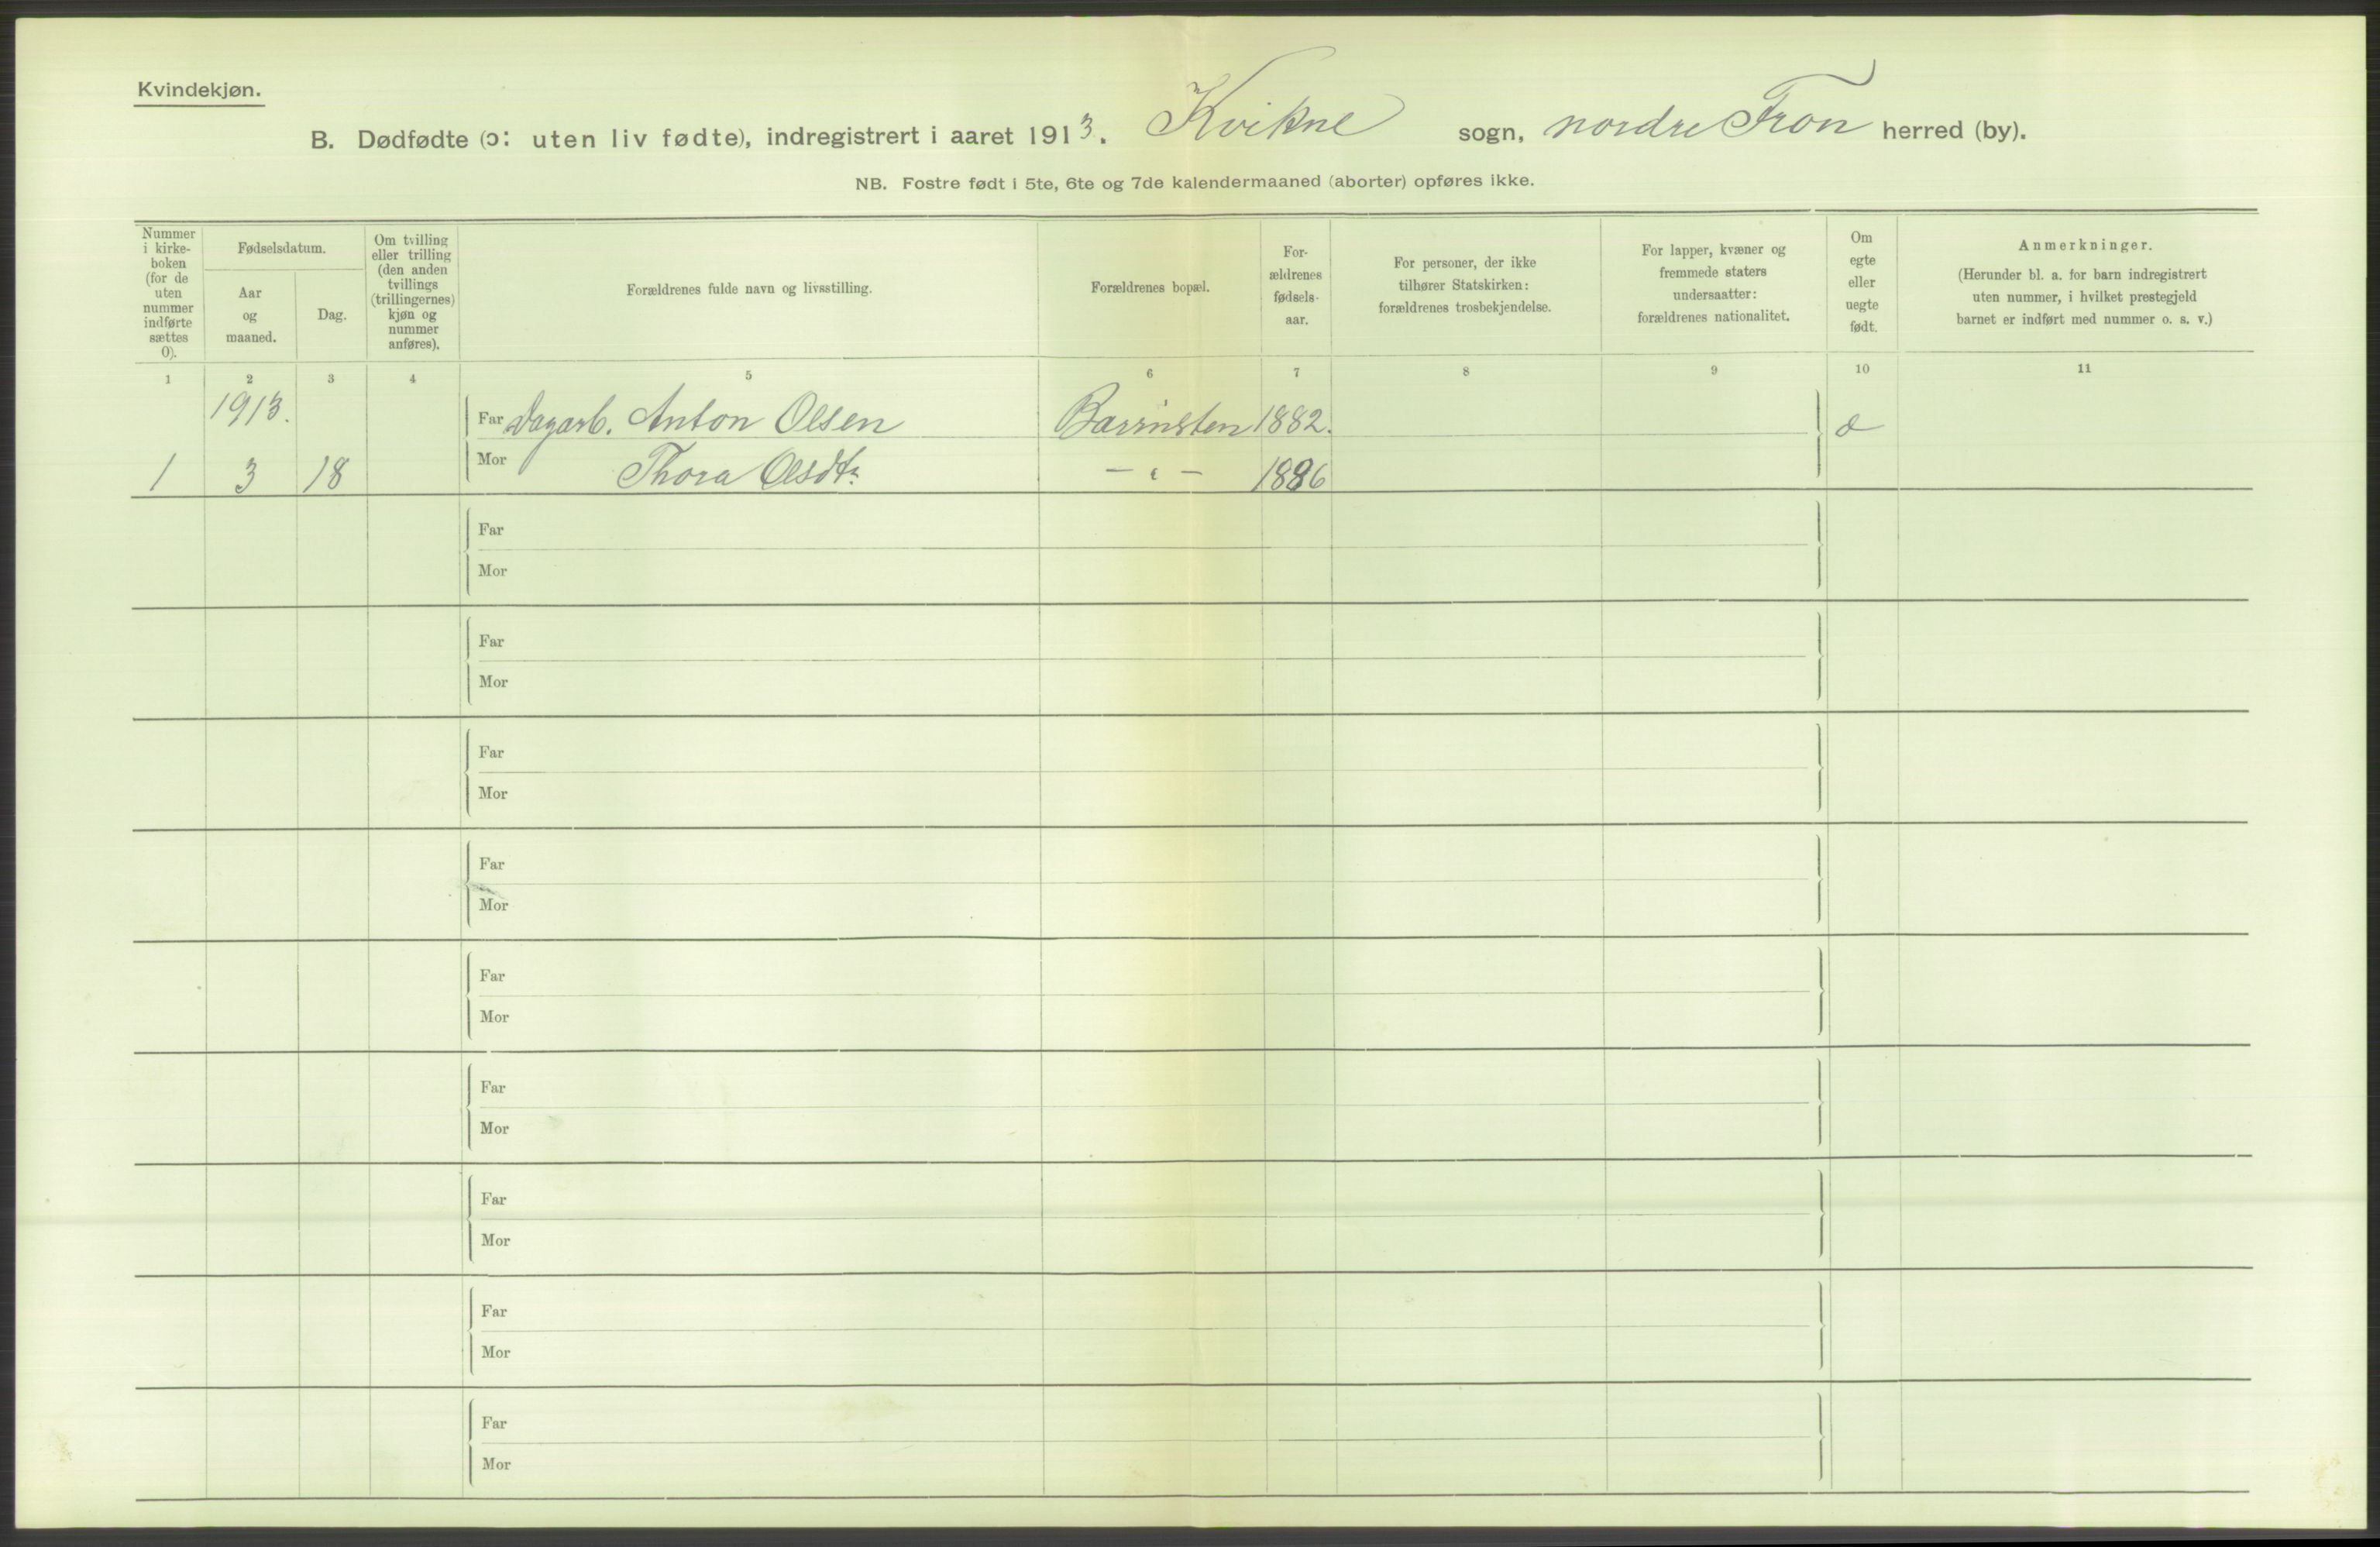 Kvindekjøn.
B. Dødfødte (ɔ: uten liv fødte), indregistrert i aaret 1913. Kvikne sogn, nordre Fron herred (by).
NB. Fostre født i 5te, 6te og 7de kalendermaaned (aborter) opføres ikke.
Nummer
i kirke-
boken
(for de
uten
nummer
indførte
sættes
0).
Fødselsdatum.
Aar
og
maaned.
Dag.
Om tvilling
eller trilling
(den anden
tvillings
(trillingernes)
kjøn og
nummer
anføres).
Forældrenes fulde navn og livsstilling.
Forældrenes bopæl.
For-
ældrenes
fødsels-
aar.
For personer, der ikke
tilhører Statskirken:
forældrenes trosbekjendelse.
For lapper, kvæner og
fremmede staters
undersaatter:
forældrenes nationalitet.
Om
egte
eller
uegte
født.
Anmerkninger.
(Herunder bl. a. for barn indregistrert
uten nummer, i hvilket prestegjeld
barnet er indført med nummer o. s. v.)
1 2 3 4 5 6 7 8 9 10 11
1913.
Far Dagarb. Anton Olsen 1882.
1 3 18 Mor Thora Olsdtr. — " — 1886
Far
Mor
Far
Mor
Far
Mor
Far
Mor
Far
Mor
Far
Mor
Far
Mor
Far
Mor
Far
Mor